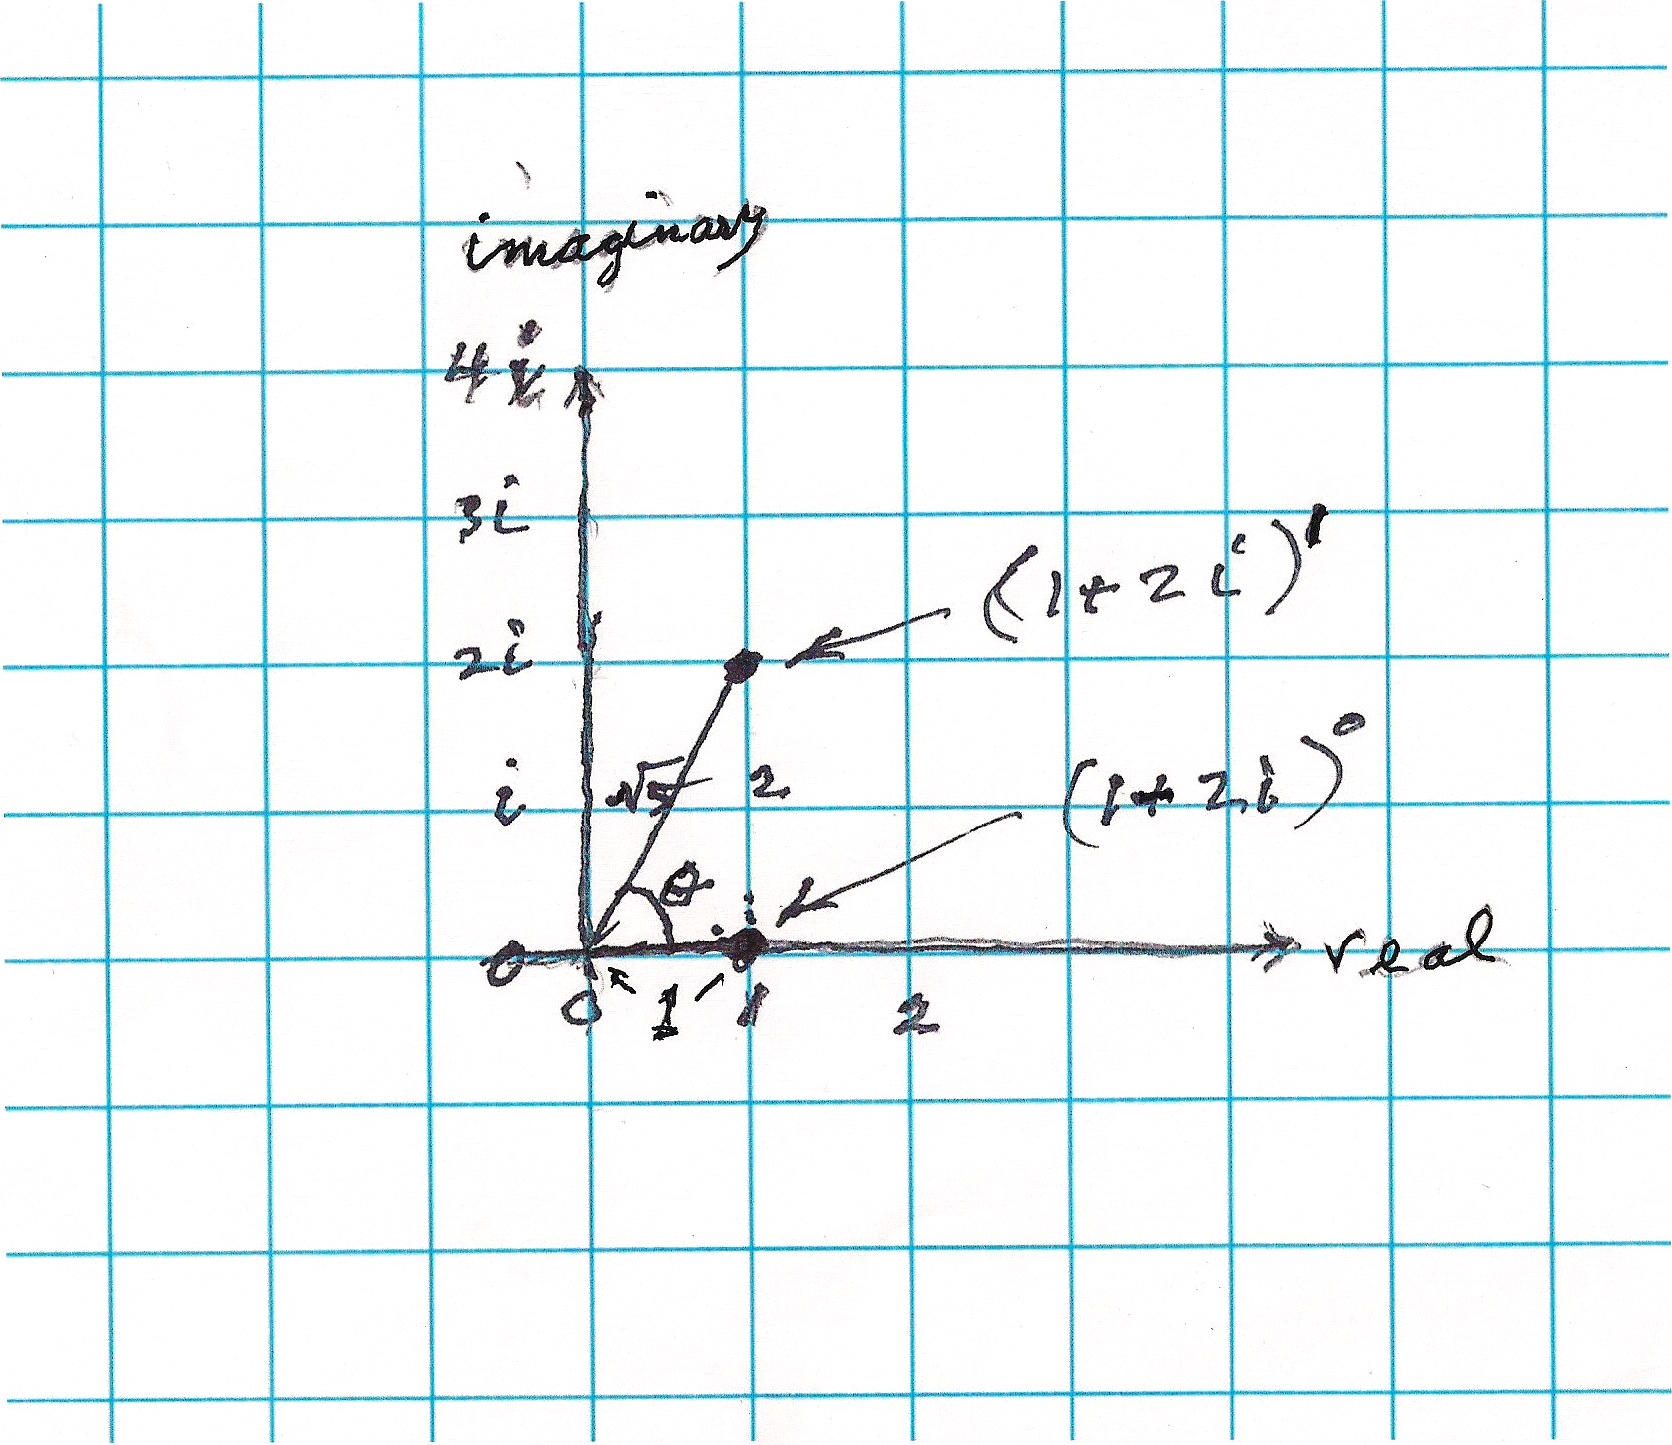 imaginary
4i
3i
(1+2i)¹
2i
(1+2i)⁰
i √5 2
θ
0 real
0 1 1 2